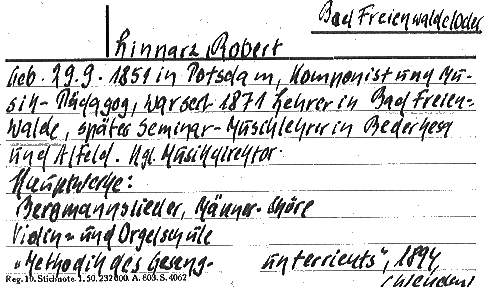 Bad Freienwalde/Oder
Linnarz, Robert
Geb. 29.9. 1851 in Potsdam, Komponist und Mu-
sik-Pädagog, war seit 1871 Lehrer in Bad Freien-
walde, später Seminar-Musiklehrer in Bederkesa
und Alfeld. Kgl. Musikdirektor.
Hauptwerke:
Bergmannslieder, Männer-Chöre
Violin- und Orgelschule
"Methodik des Gesang-unterrichts", 1894
Reg. 10. Stichnote. 1. 50. 232 000. A. 803. S. 4062